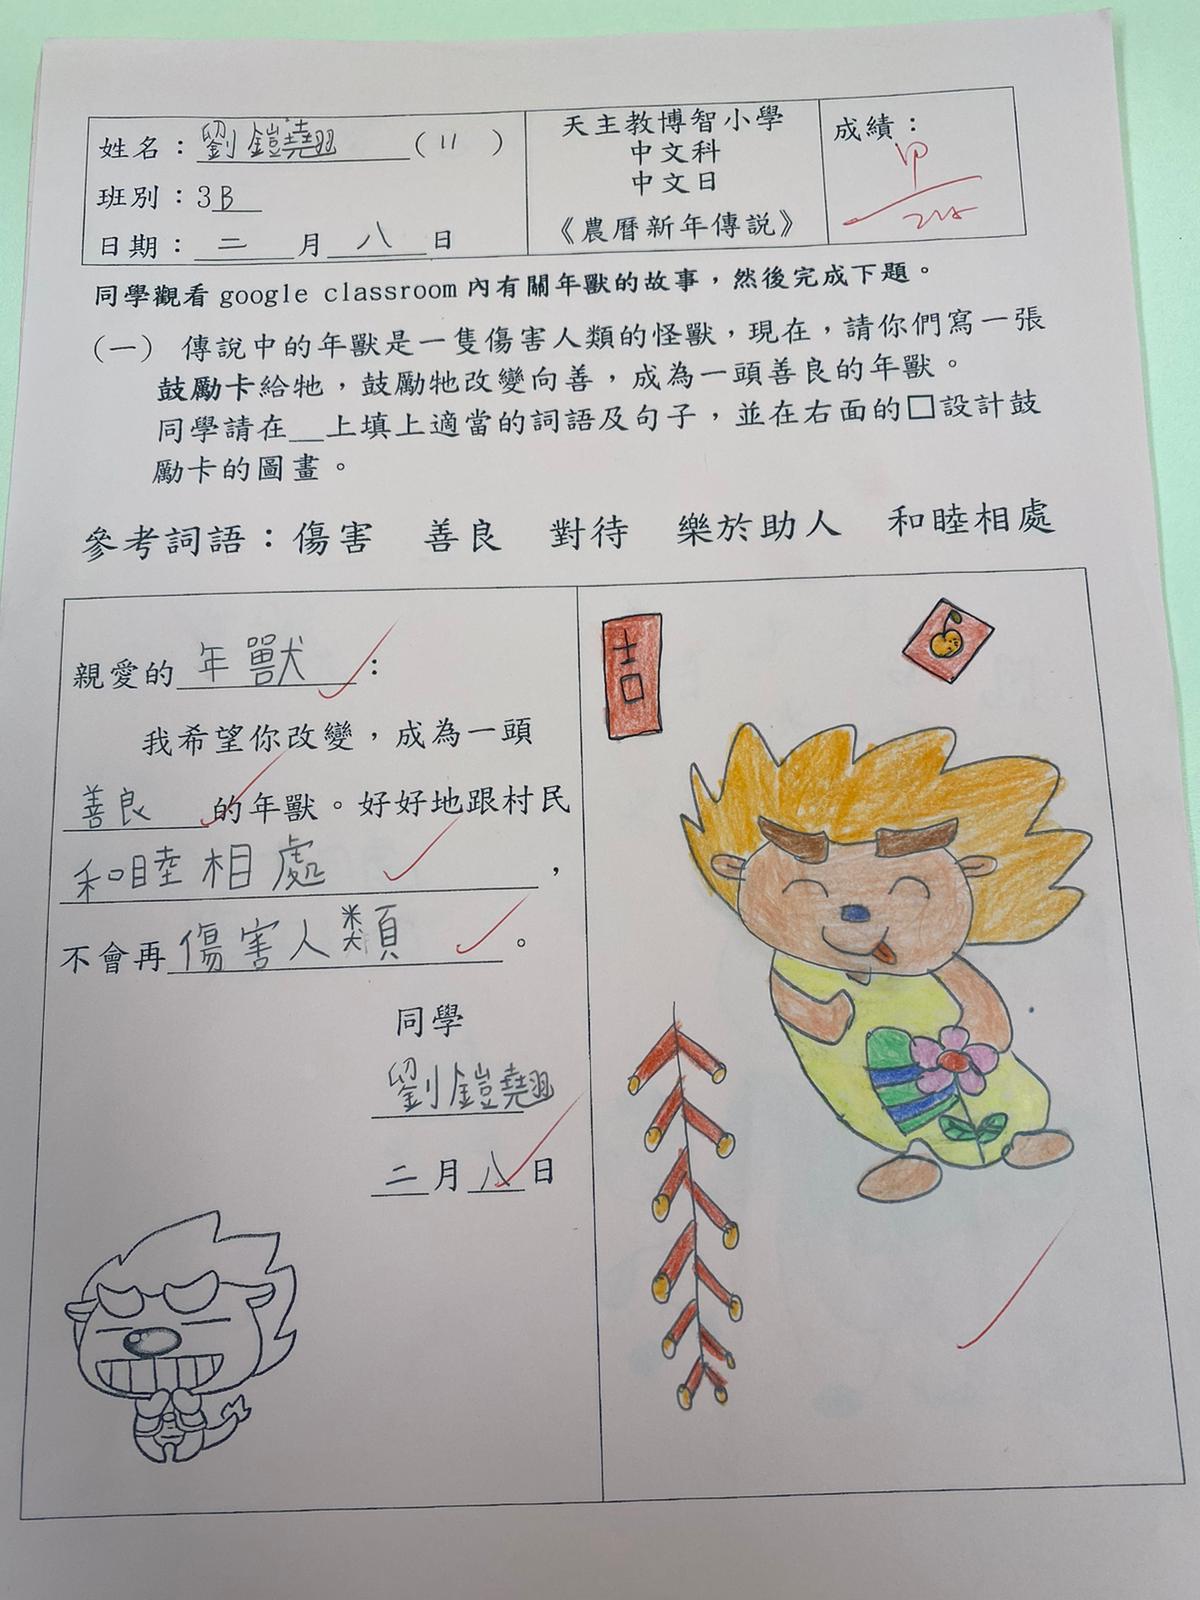 姓名：劉鎧翹（11）
班別：3B
日期：二月八日
天主教博智小學
中文科
中文日
《農曆新年傳說》
成績：
甲
同學觀看 google classroom 內有關年獸的故事，然後完成下題。
（一） 傳說中的年獸是一隻傷害人類的怪獸，現在，請你們寫一張
鼓勵卡給牠，鼓勵牠改變向善，成為一頭善良的年獸。
同學請在__上填上適當的詞語及句子，並在右面的□設計鼓
勵卡的圖畫。
參考詞語：傷害 善良 對待 樂於助人 和睦相處
親愛的年獸：
我希望你改變，成為一頭
善良的年獸。好好地跟村民
和睦相處，
不會再傷害人類。
同學
劉鎧翹
二月八日
吉